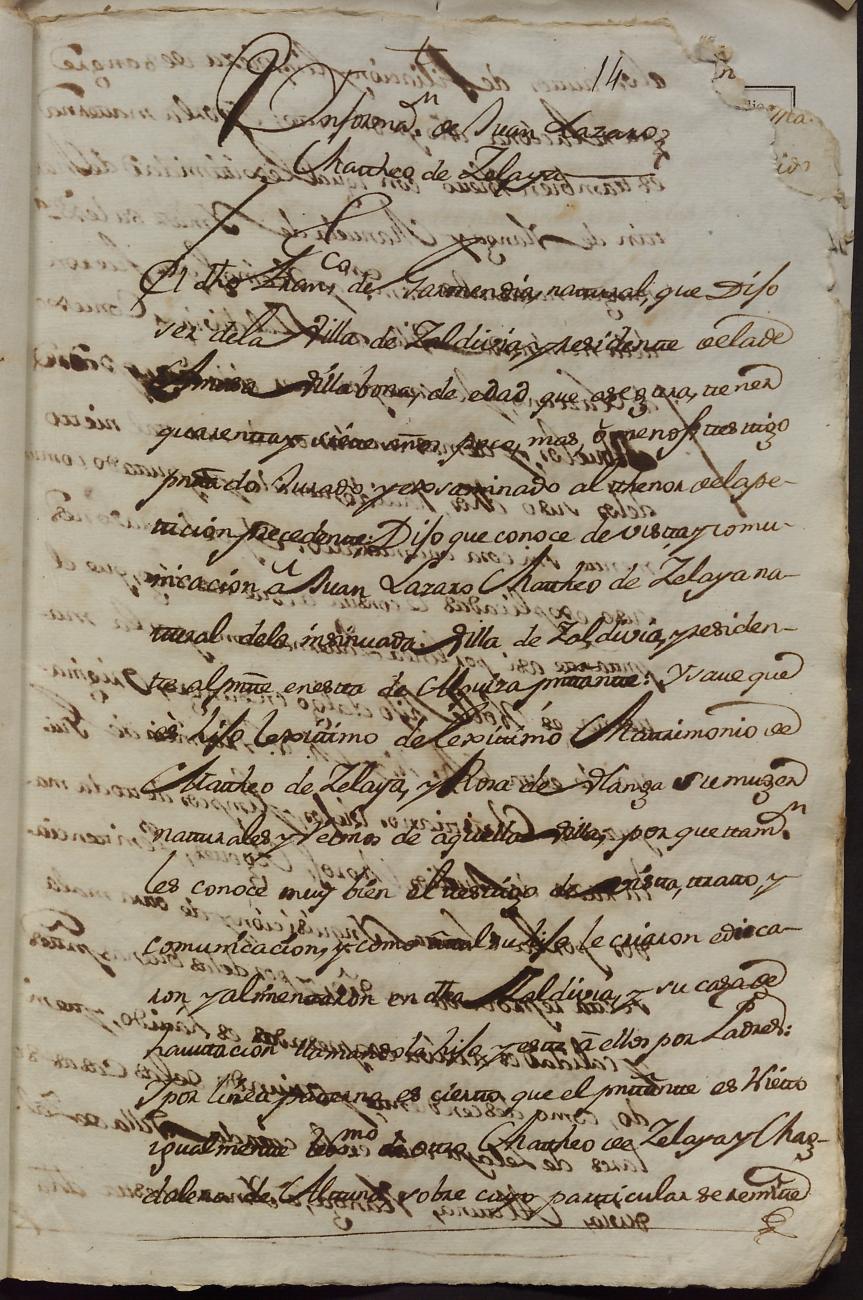 14
Informaⁿ de Juan Lazaro
Mattheo de Zelaya
El dho Franᶜᵒ de Garmendia, natural, que Dijo
ser dela Villa de Zaldivia, y residente de la de
Villabona, de edad que asegura, tener
quarenta y siete años poco, mas, ô menos, testigo
pnttado Jurado, y exsaminado al thenor dela pe-
ticion precedente: Dijo que conoce de vista, y comu-
nicacion â Juan Lazaro Mattheo de Zelaya na-
tural dela insinuada Villa de Zaldivia, y residen-
te al pntte en esta de pnttante: Y save que
es hijo lexitimo de lexitimo Mattrimonio de
Mattheo de Zelaya, y Rosa de Yanga su muger
naturales y vecinos de aquella Villa, por que tamⁿ
les conoce muy bien el testigo de vista, tratto, y
comunicacion, y como â tal su hijo le criaron educa-
ron y alimentaron en dha Zaldivia, y su casa de
havitacion llamandole hijo, y este â ellos por Padres:
Y por linea paterna es cierto que el pnttante es Nietto
igualmente lexmo de otro Mattheo de Zelaya y Mag-
dalena de Altuna, sobre cuyo particular se remitte